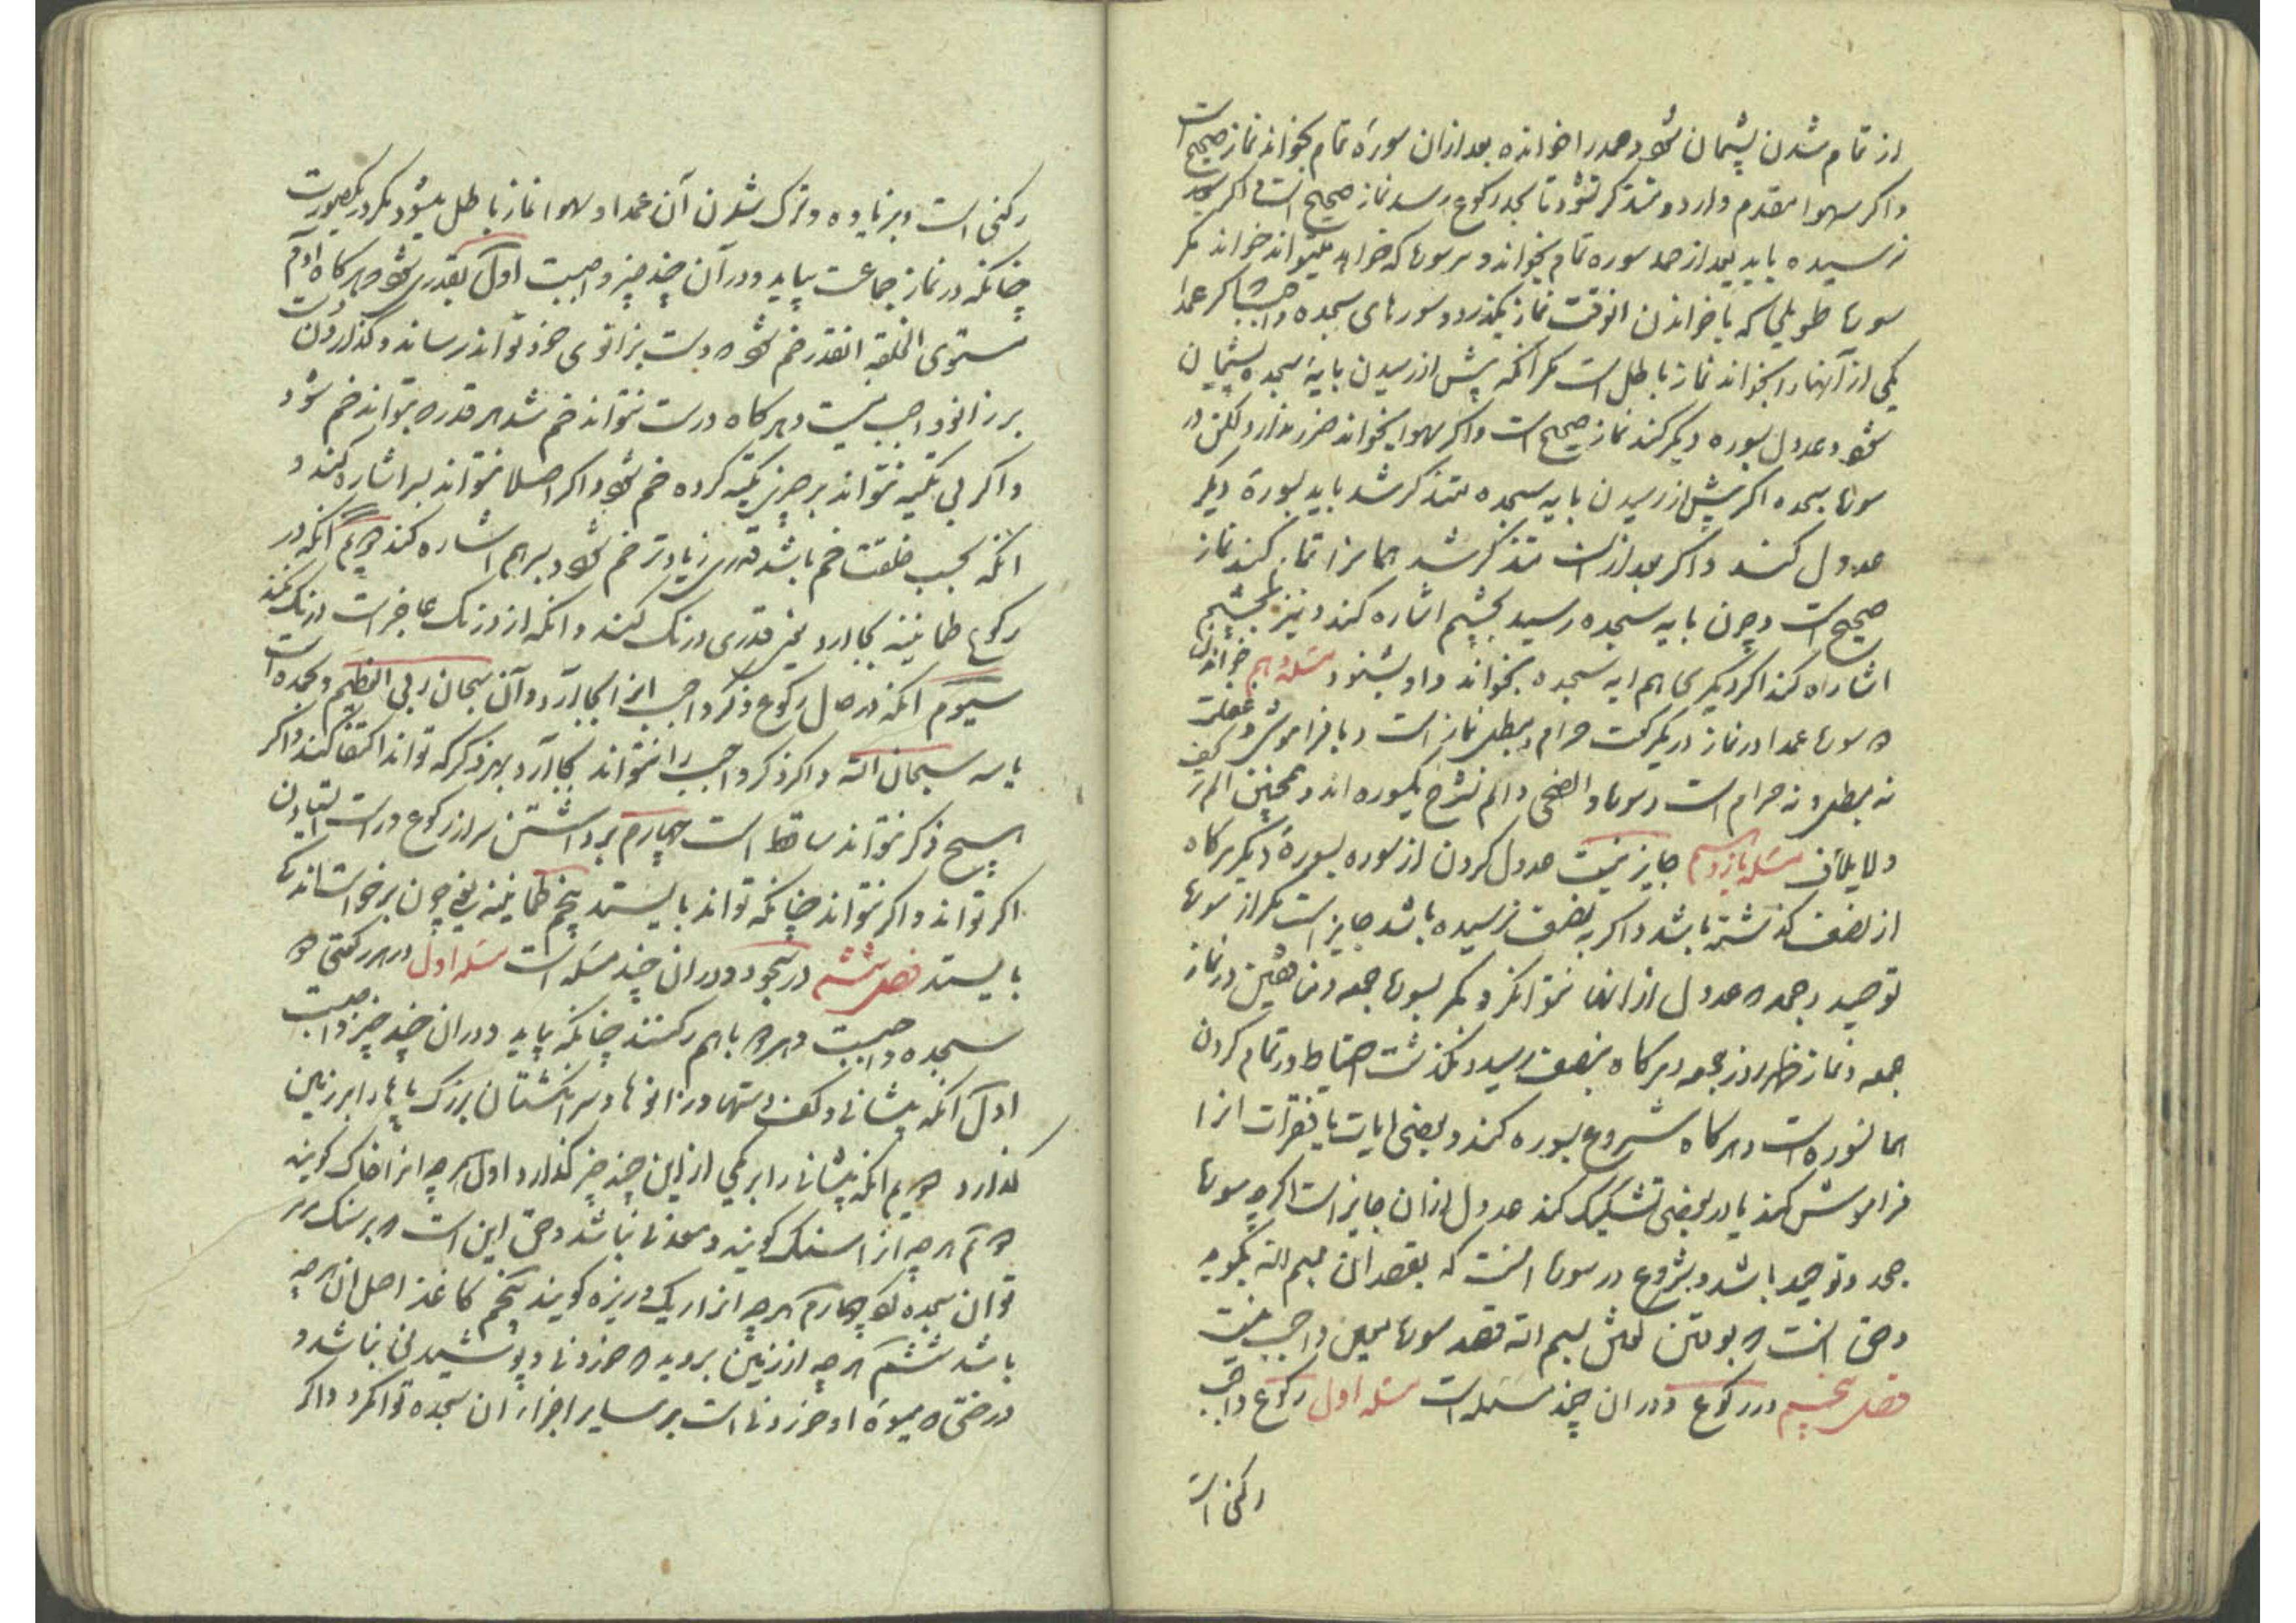 از تمام شدن پشیمان شود و حمد را خوانده بعد ازان سورهٔ تمام بخواند نماز صحیح است
و اگر سهوا مقدم دارد و متذکر نشود تا بحد رکوع رسد نماز صحیح است و اگر بحد
نرسیده باید بعد از حمد سوره تمام بخواند و هر سوره که خواهد میتواند خواند مگر
سوره طویلی که با خواندن ان وقت نماز بگذرد و سورهای سجده واجب که اگر عمدا
یکی از آنها را بخواند نماز باطل است مگر انکه پیش از رسیدن بایهٔ سجده پشیمان
شود و عدول بسوره دیگر کند نماز صحیح است و اگر سهوا بخواند ضرر ندارد لکن در
سوره سجده اگر پیش از رسیدن بایه سجده متذکر شد باید بسورهٔ دیگر
عدول کند و اگر بعد ازان متذکر شد همانرا تمام کند نماز
صحیح است و چون بایه سجده رسید بچشم اشاره کند و نیز بچشم
اشاره کند اگر دیگری هم ایه سجده بخواند و او بشنود مسئله دهم خواندن
دو سوره عمدا در نماز در یک رکعت حرام و مبطل نماز است و با فراموشی و غفلت
نه مبطل و نه حرام است و سوره والضحی و الم نشرح یکسوره اند و همچنین الم تر کیف
و لایلاف مسئله یازدهم جایز نیست عدول کردن از سوره بسورهٔ دیگر هرگاه
از نصف گذشته باشد و اگر به نصف نرسیده باشد جایز است مگر از سوره
توحید و جحد که عدول از انها نتوانکرد مگر بسوره جمعه و منافقین در نماز
جمعه و نماز ظهر روز جمعه و هرگاه بنصف رسید و نگذشت احتیاط در تمام کردن
همانسوره است و هرگاه شروع بسوره کند و بعضی ایات یا فقرات انرا
فراموش کند یا در بعضی تشکیک کند عدول ازان جایز است اگرچه سوره
جحد و توحید باشد و شروع در سوره انست که بقصد ان بسم الله بگوید
و حق انست که بوقتن گفتن بسم الله قصد سوره معین واجب نیست
فصل پنجم در رکوع و دران چند مسئله است مسئله اول رکوع واجب
رکنی است
رکنی است و بزیاده و ترک شدن آن عمدا و سهوا نماز باطل میشود مگر در یکصورت
چنانکه در نماز جماعت بیاید و در آن چند چیز واجبست اول بقدری که هرگاه آدم
مستوی الخلقه انقدر خم شود دست بزانوی خود تواند رساند و گذاردن دست
بر زانو واجب نیست و هرگاه درست نتواند خم شد هر قدر که بتواند خم شود
و اگر بی تکیه نتواند بر چیزی تکیه کرده خم شود و اگر اصلا نتواند بسر اشاره کند و
انکه بحسب خلقت خم باشد قدری زیادتر خم شود و بسر هم اشاره کند دویم آنکه در
رکوع طمانینه بجا ارد یعنی قدری درنگ کند و انکه از درنگ عاجز است درنگ نکند
سیوم انکه در حال رکوع ذکر واجب انرا بجا آرد و آن سبحان ربی العظیم و بحمده است
یا سه سبحان الله و اگر ذکر واجب را نتواند بجا آرد بهر ذکر که تواند اکتفا کند و اگر
هیچ ذکر نتواند ساقط است چهارم برداشتن سر از رکوع و راست ایستادن
اگر تواند و اگر نتواند چنانکه تواند بایستد پنجم طمانینه یعنی چون برخواست اندکی
بایستد فصل ششم در سجود و دران چند مسئله است مسئله اول در هر رکعتی دو
سجده واجبست و هر دو باهم رکنند چنانکه بیاید و دران چند چیز واجبست
اول آنکه پیشانی و کف دستها و زانوها و سر انگشتان بزرگ پاها را بر زمین
گذارد دویم انکه پیشانی را بر یکی از این چند چیز گذارد اول هرچه انرا خاک گویند
دویم هرچه انرا سنگ گویند و معدنی نباشد و حق این است که بر سنگ مرمر
توان سجده کرد چهارم هرچه انرا ریک و ریزه گویند پنجم کاغذ اصل ان هرچه
باشد ششم هرچه از زمین بروید که خوردنی و پوشیدنی نباشد و
درختی که میوهٔ او خوردنی است بر سایر اجزاء ان سجده توانکرد و اگر